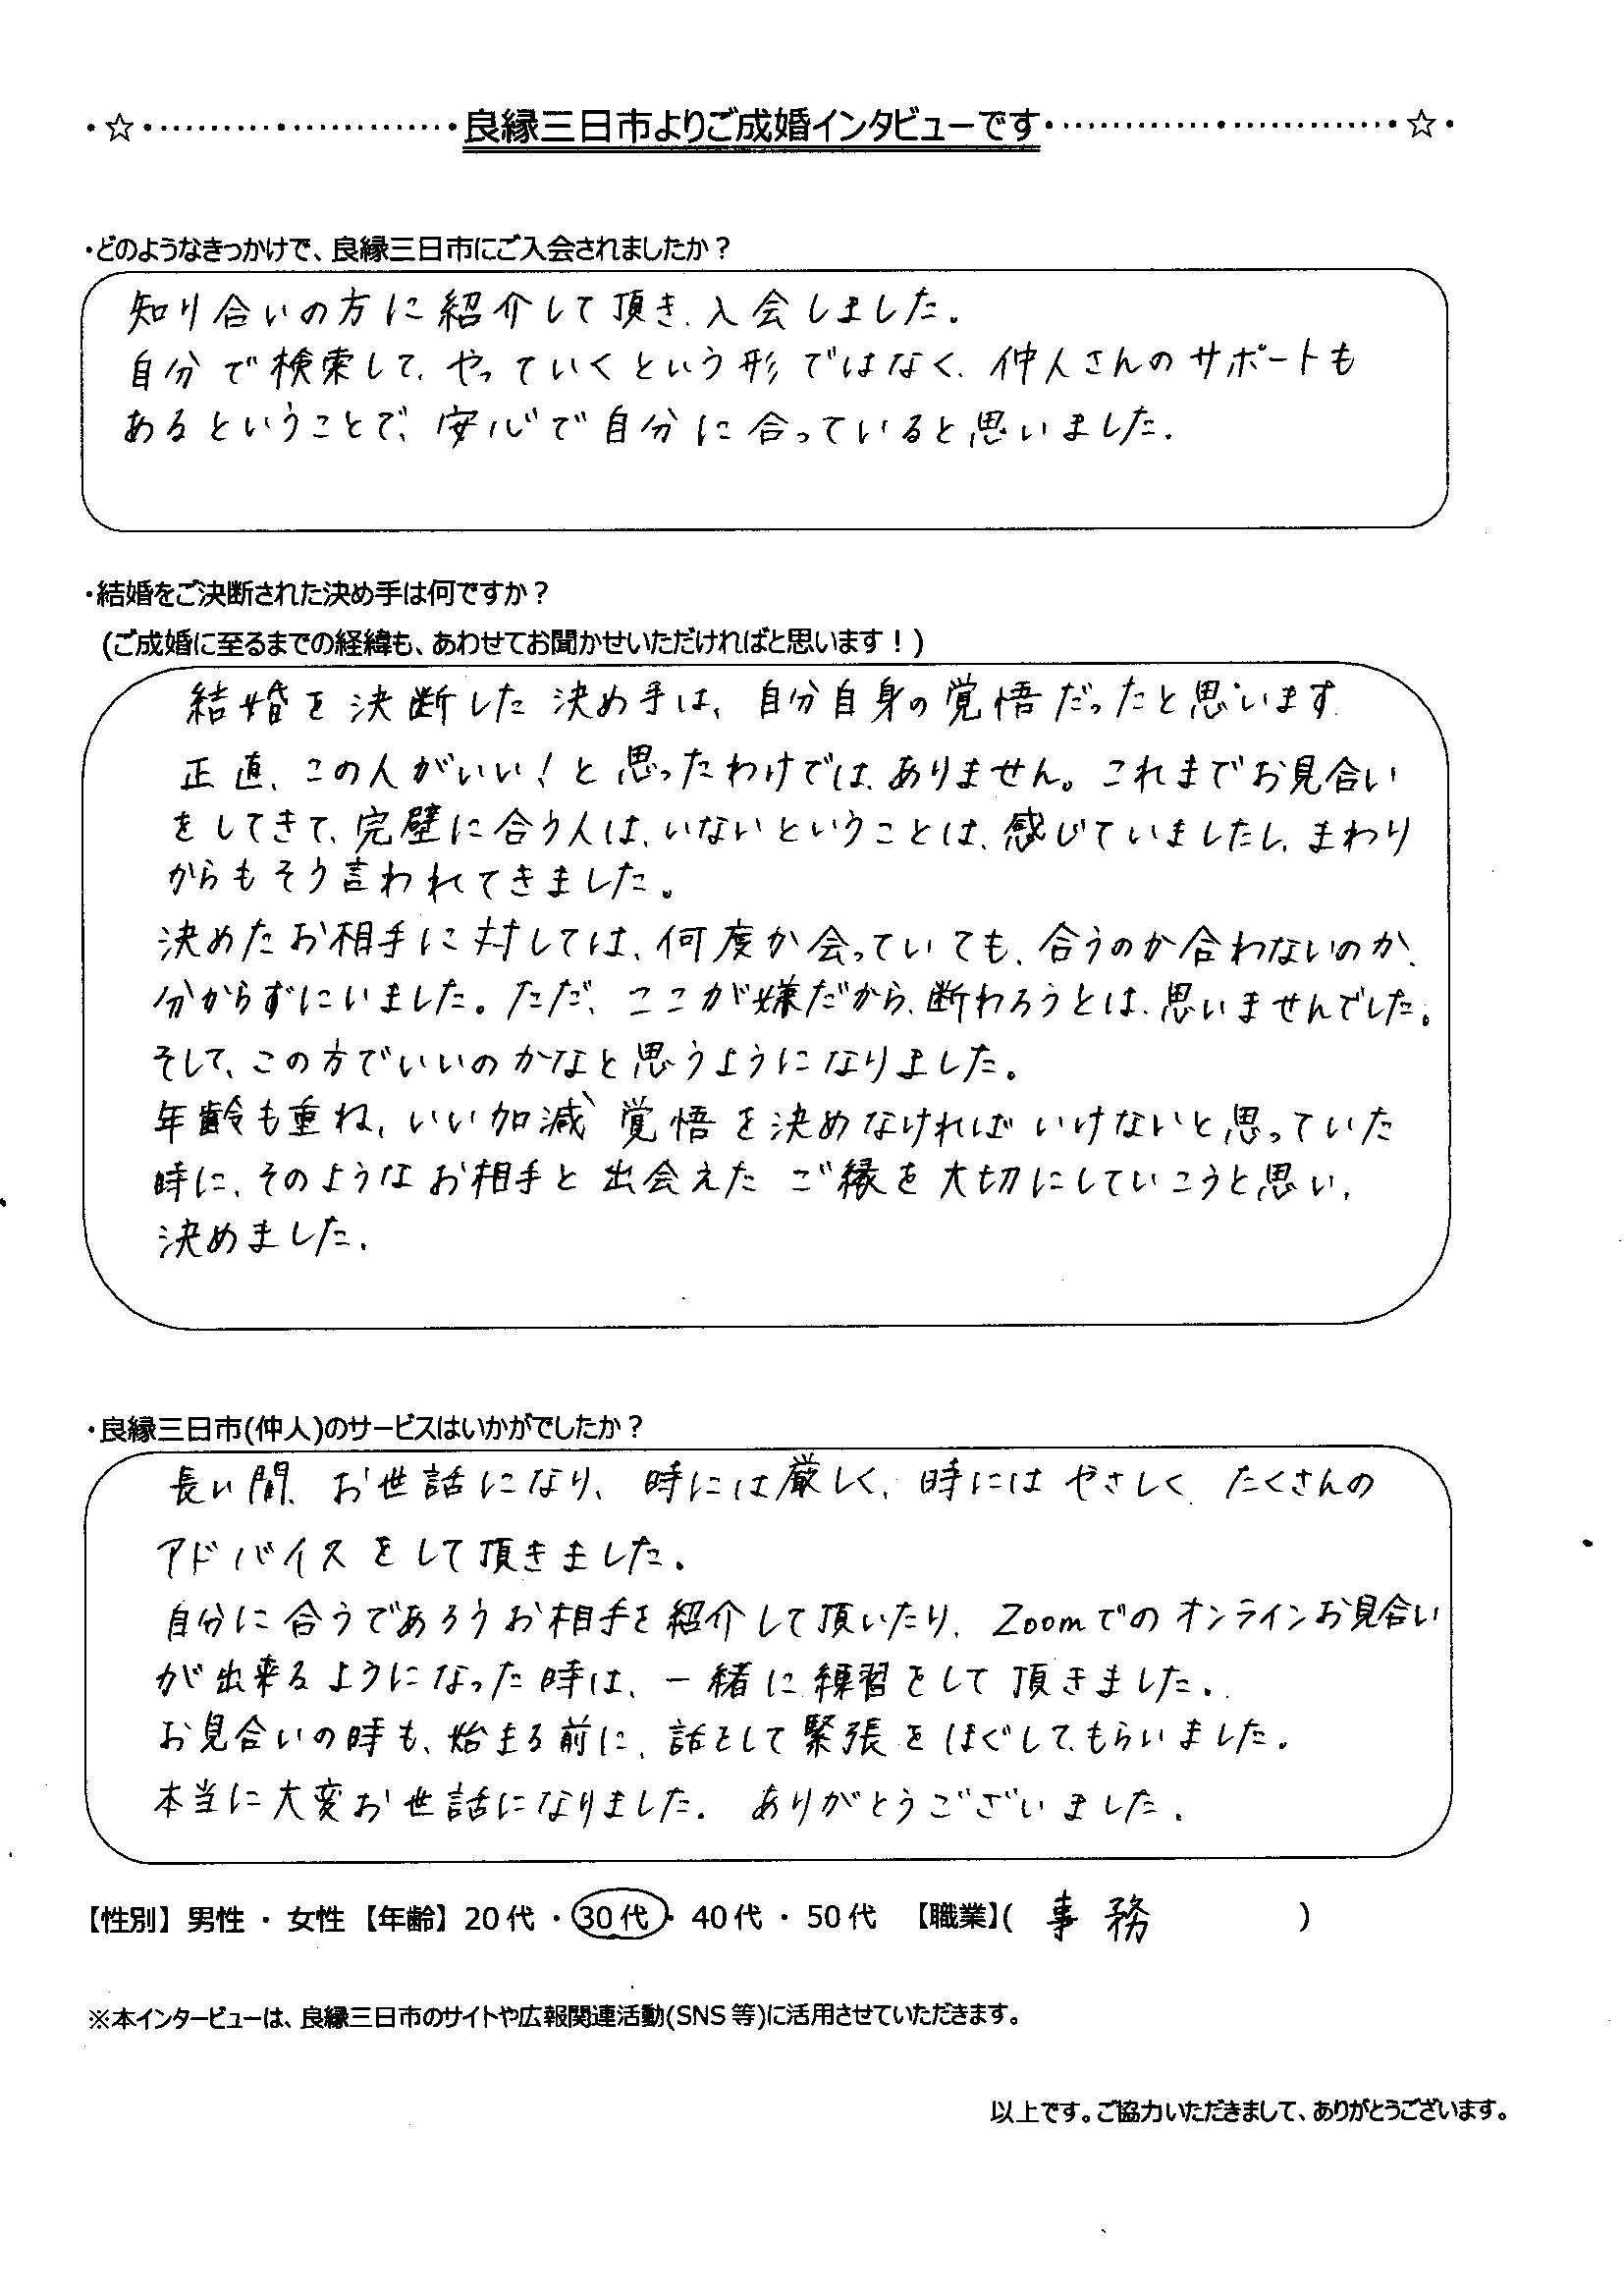 ・☆・………・………・良縁三日市よりご成婚インタビューです・………・………・☆・
・どのようなきっかけで、良縁三日市にご入会されましたか？
知り合いの方に紹介して頂き、入会しました。
自分で検索して、やっていくという形ではなく、仲人さんのサポートも
あるということで、安心で自分に合っていると思いました。
・結婚をご決断された決め手は何ですか？
(ご成婚に至るまでの経緯も、あわせてお聞かせいただければと思います！)
結婚を決断した決め手は、自分自身の覚悟だったと思います。
正直、この人がいい！と思ったわけでは、ありません。これまでお見合い
をしてきて、完璧に合う人は、いないということは、感じていましたし、まわり
からもそう言われてきました。
決めたお相手に対しては、何度か会っていても、合うのか合わないのか、
分からずにいました。ただ、ここが嫌だから、断わろうとは、思いませんでした。
そして、この方でいいのかなと思うようになりました。
年齢も重ね、いい加減、覚悟を決めなければいけないと思っていた
時に、そのようなお相手と出会えたご縁を大切にしていこうと思い、
決めました。
・良縁三日市(仲人)のサービスはいかがでしたか？
長い間、お世話になり、時には厳しく、時にはやさしく、たくさんの
アドバイスをして頂きました。
自分に合うであろうお相手を紹介して頂いたり、Zoomでのオンラインお見合い
が出来るようになった時は、一緒に練習をして頂きました。
お見合いの時も、始まる前に、話をして緊張をほぐしてもらいました。
本当に大変お世話になりました。ありがとうございました。
【性別】男性 ・ 女性【年齢】20代 ・ 30代 ・ 40代 ・ 50代 【職業】( 事務 )
※本インタービューは、良縁三日市のサイトや広報関連活動(SNS等)に活用させていただきます。
以上です。ご協力いただきまして、ありがとうございます。